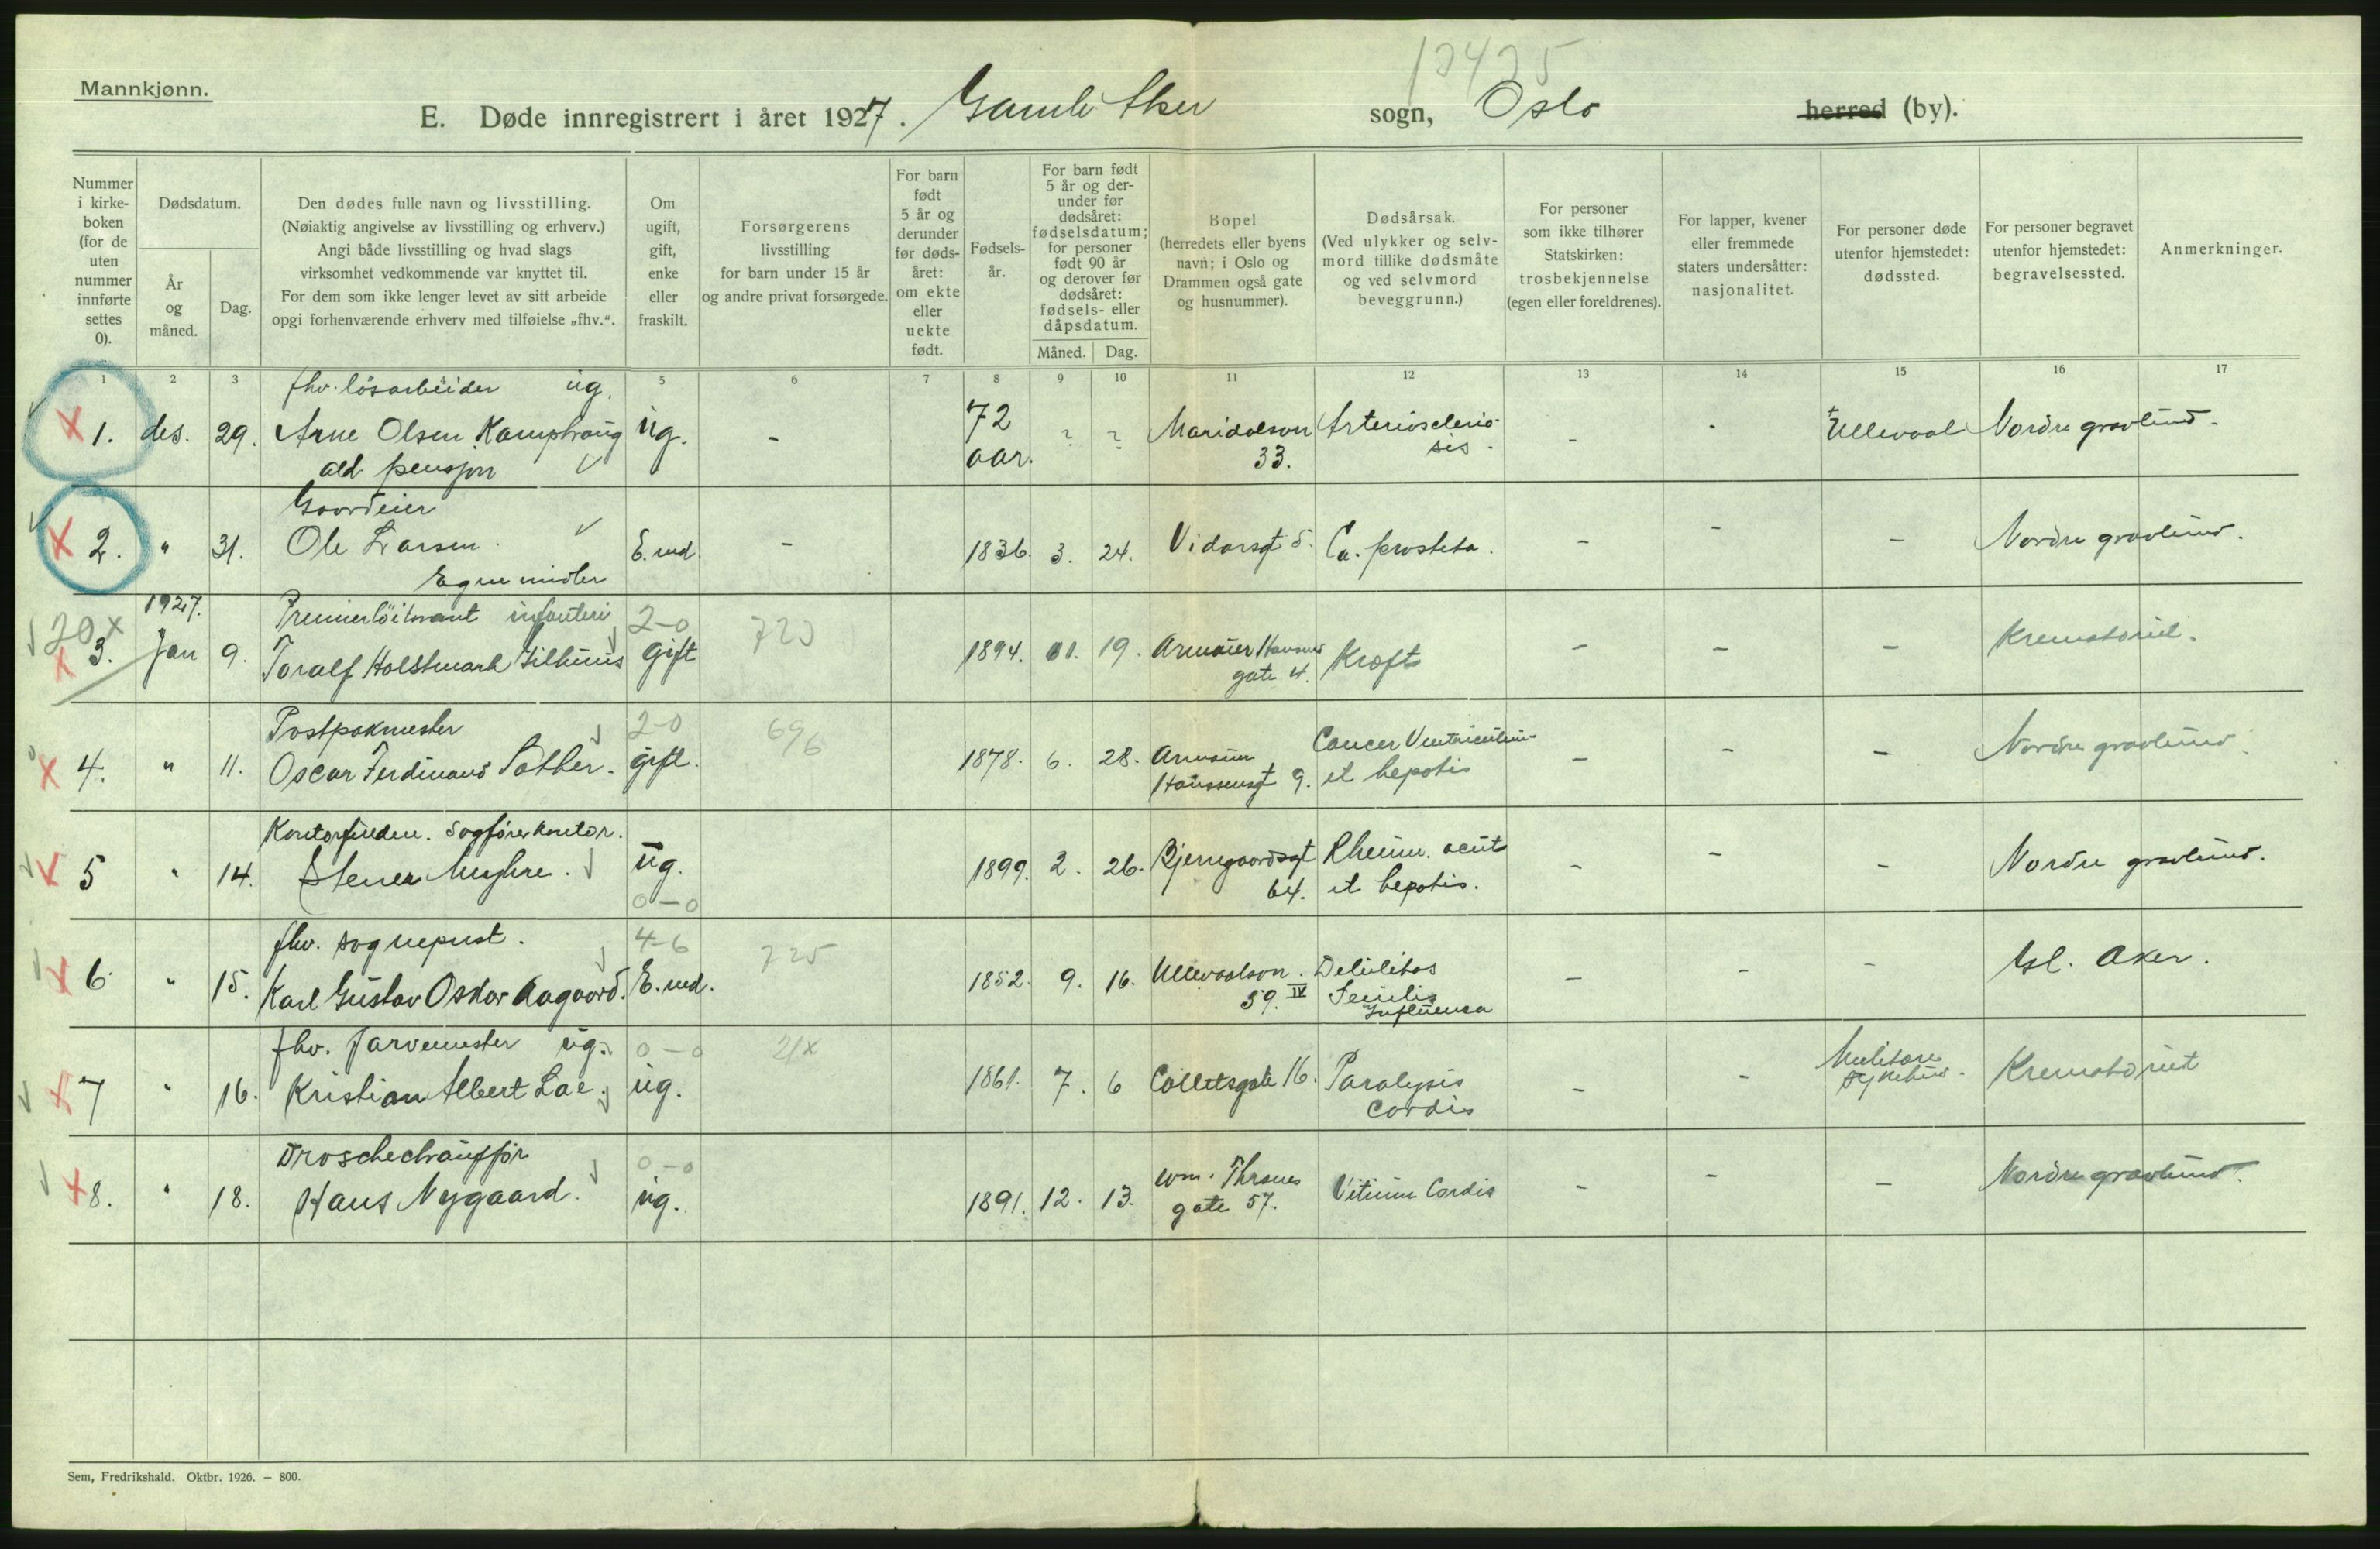 Mannkjønn.
E. Døde innregistrert i året 1927. Gamle Aker sogn, Oslo herred (by).
Nummer i kirke-boken (for de uten nummer innførte settes 0).
Dødsdatum.
År og måned.
Dag.
Den dødes fulle navn og livsstilling.
(Nøiaktig angivelse av livsstilling og erhverv.)
Angi både livsstilling og hvad slags
virksomhet vedkommende var knyttet til.
For dem som ikke lenger levet av sitt arbeide
opgi forhenværende erhverv med tilføielse „fhv.“.
Om ugift, gift, enke eller fraskilt.
Forsørgerens livsstilling
for barn under 15 år
og andre privat forsørgede.
For barn født 5 år og derunder før døds-året: om ekte eller uekte født.
Fødsels-år.
For barn født 5 år og der-under før dødsåret: fødselsdatum; for personer født 90 år og derover før dødsåret: fødsels- eller dåpsdatum.
Måned. Dag.
Bopel
(herredets eller byens navn; i Oslo og Drammen også gate og husnummer).
Dødsårsak.
(Ved ulykker og selv-mord tillike dødsmåte og ved selvmord beveggrunn.)
For personer som ikke tilhører Statskirken: trosbekjennelse (egen eller foreldrenes).
For lapper, kvener eller fremmede staters undersåtter: nasjonalitet.
For personer døde utenfor hjemstedet: dødssted.
For personer begravet utenfor hjemstedet: begravelsessted.
Anmerkninger.
1 2 3 5 6 7 8 9 10 11 12 13 14 15 16 17
fhv. løsarbeider ug.
1. des. 29. Arne Olsen ug. - 72 aar. ? ? Maridalsvn 33. Arteriosclerosis. - - Ullevaal Nordre gravlund.
ald pensjon
Gaardeier
2. " 31. Ole Larsen. E.md. - 1836. 3. 24. Vidarsgt 5. Ca. prostata. - - - Nordre gravlund.
Egne midler
1927. Premierløitnant infanteri 2-0
3. Jan 9. Toralf Holstmark gift 1894. 11. 19. Armauer Hansens gate 4. - - - Krematoriet.
Postpakmester 2-0 696
4. " 11. Oscar Ferdinand Sæther. gift. 1878. 6. 28. Armauer Hanssensgt 9. Cancer Ventriculi et hepatis - - - Nordre gravlund.
Sagførerkontor.
5 " 14. ug. 1899. 2. 26. Bjerregaardsgt 64. Rheum. acut et hepatis. - - - Nordre gravlund.
0-0
fhv. sogneprest. 4-6 725
6 " 15. Karl Gustav Oskar Aagaard. E.md. 1852. 9. 16. Ullevaalsvn. 59. IV Debilitas Senilis Influensa - - - Gl. Aker.
fhv. farvemester ug. 0-0
7 " 16. Kristian Albert ug. 1861. 7. 6 Colletsgate 16. Paralysis Cordis - - Militære sykehus. Krematoriet
Droschechauffør 0-0
8. " 18. Hans Nygaard. ug. 1891. 12. 13. Wm. Thranes gate 57. Vitium Cordis - - - Nordre gravlund.
Sem, Fredrikshald. Oktbr. 1926. — 800.